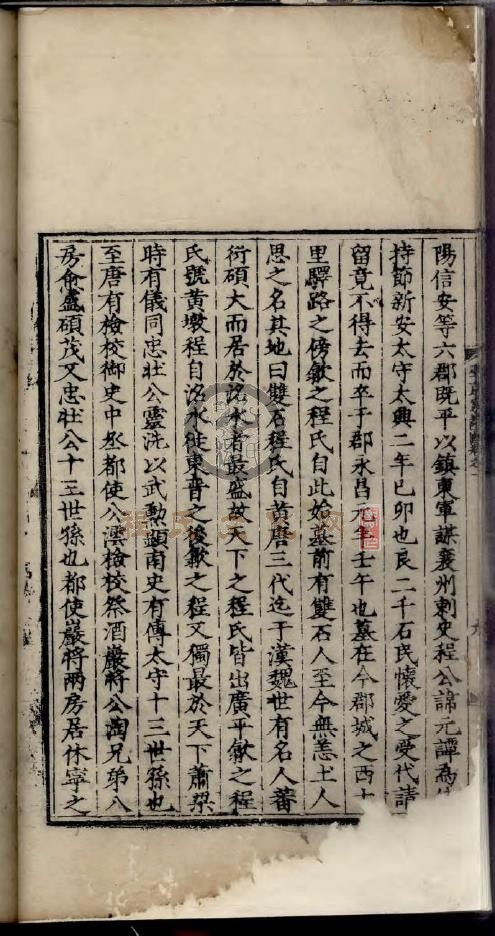 陽信安等六郡既平以鎮東軍謀襄州刺史程公諱元譚為
持節新安太守太興二年已卯也良二千石民懷愛之受代請
留竟不得去而卒于郡永昌元年壬午也墓在今郡城之西十
里驛路之傍歙之程氏自此始墓前有雙石人至今無恙土人
思之名其地曰雙石程氏自黃唐三代迄于漢魏世有名人蕃
衍碩大而居於洺水者最盛故天下之程氏皆出廣平歙之程
氏號黃墩程自洺水徙東晉之後歙之程又獨最於天下蕭梁
時有儀同忠壯公靈洗以武勳顯南史有傳太守十三世孫也
至唐有檢校御史中丞都使公澐檢校祭酒巖將公淘兄弟八
房俞盛碩茂又忠壯公十三世孫也都使巖將兩房居休寧之